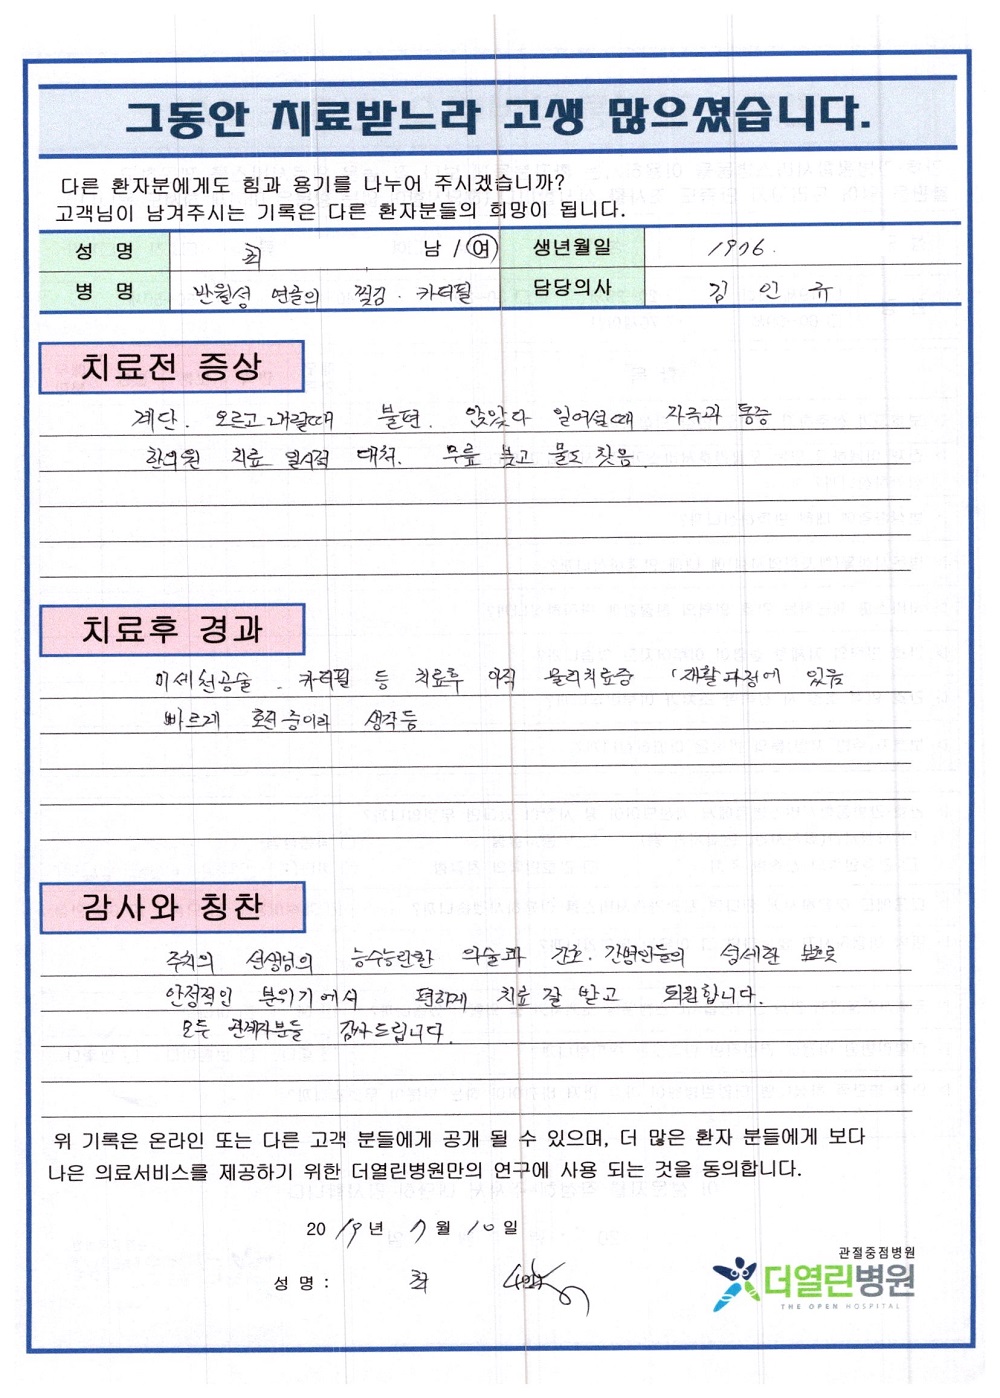 그동안 치료받느라 고생 많으셨습니다.
다른 환자분에게도 힘과 용기를 나누어 주시겠습니까?
고객님이 남겨주시는 기록은 다른 환자분들의 희망이 됩니다.
성 명 최 남 / 여 생년월일 1976.
병 명 반월성 연골의 찢김. 카티필 담당의사 김 인 규
치료전 증상
계단. 오르고 내릴때 불편. 앉았다 일어설때 자극과 통증
한의원 치료 일시적 대처. 무릎 붓고 물도 찼음.
치료후 경과
미세천공술. 카티필 등 치료후 아직 물리치료중 재활과정에 있음
빠르게 호전중이라 생각듬.
감사와 칭찬
주치의 선생님의 능수능란한 의술과 간호. 간병인들의 섬세한
안정적인 분위기에서 편하게 치료 잘 받고 퇴원합니다.
모두 관계자분들 감사드립니다.
위 기록은 온라인 또는 다른 고객 분들에게 공개 될 수 있으며, 더 많은 환자 분들에게 보다
나은 의료서비스를 제공하기 위한 더열린병원만의 연구에 사용 되는 것을 동의합니다.
20 19 년 7 월 10 일
성 명 : 최
관절중점병원
더열린병원
THE OPEN HOSPITAL